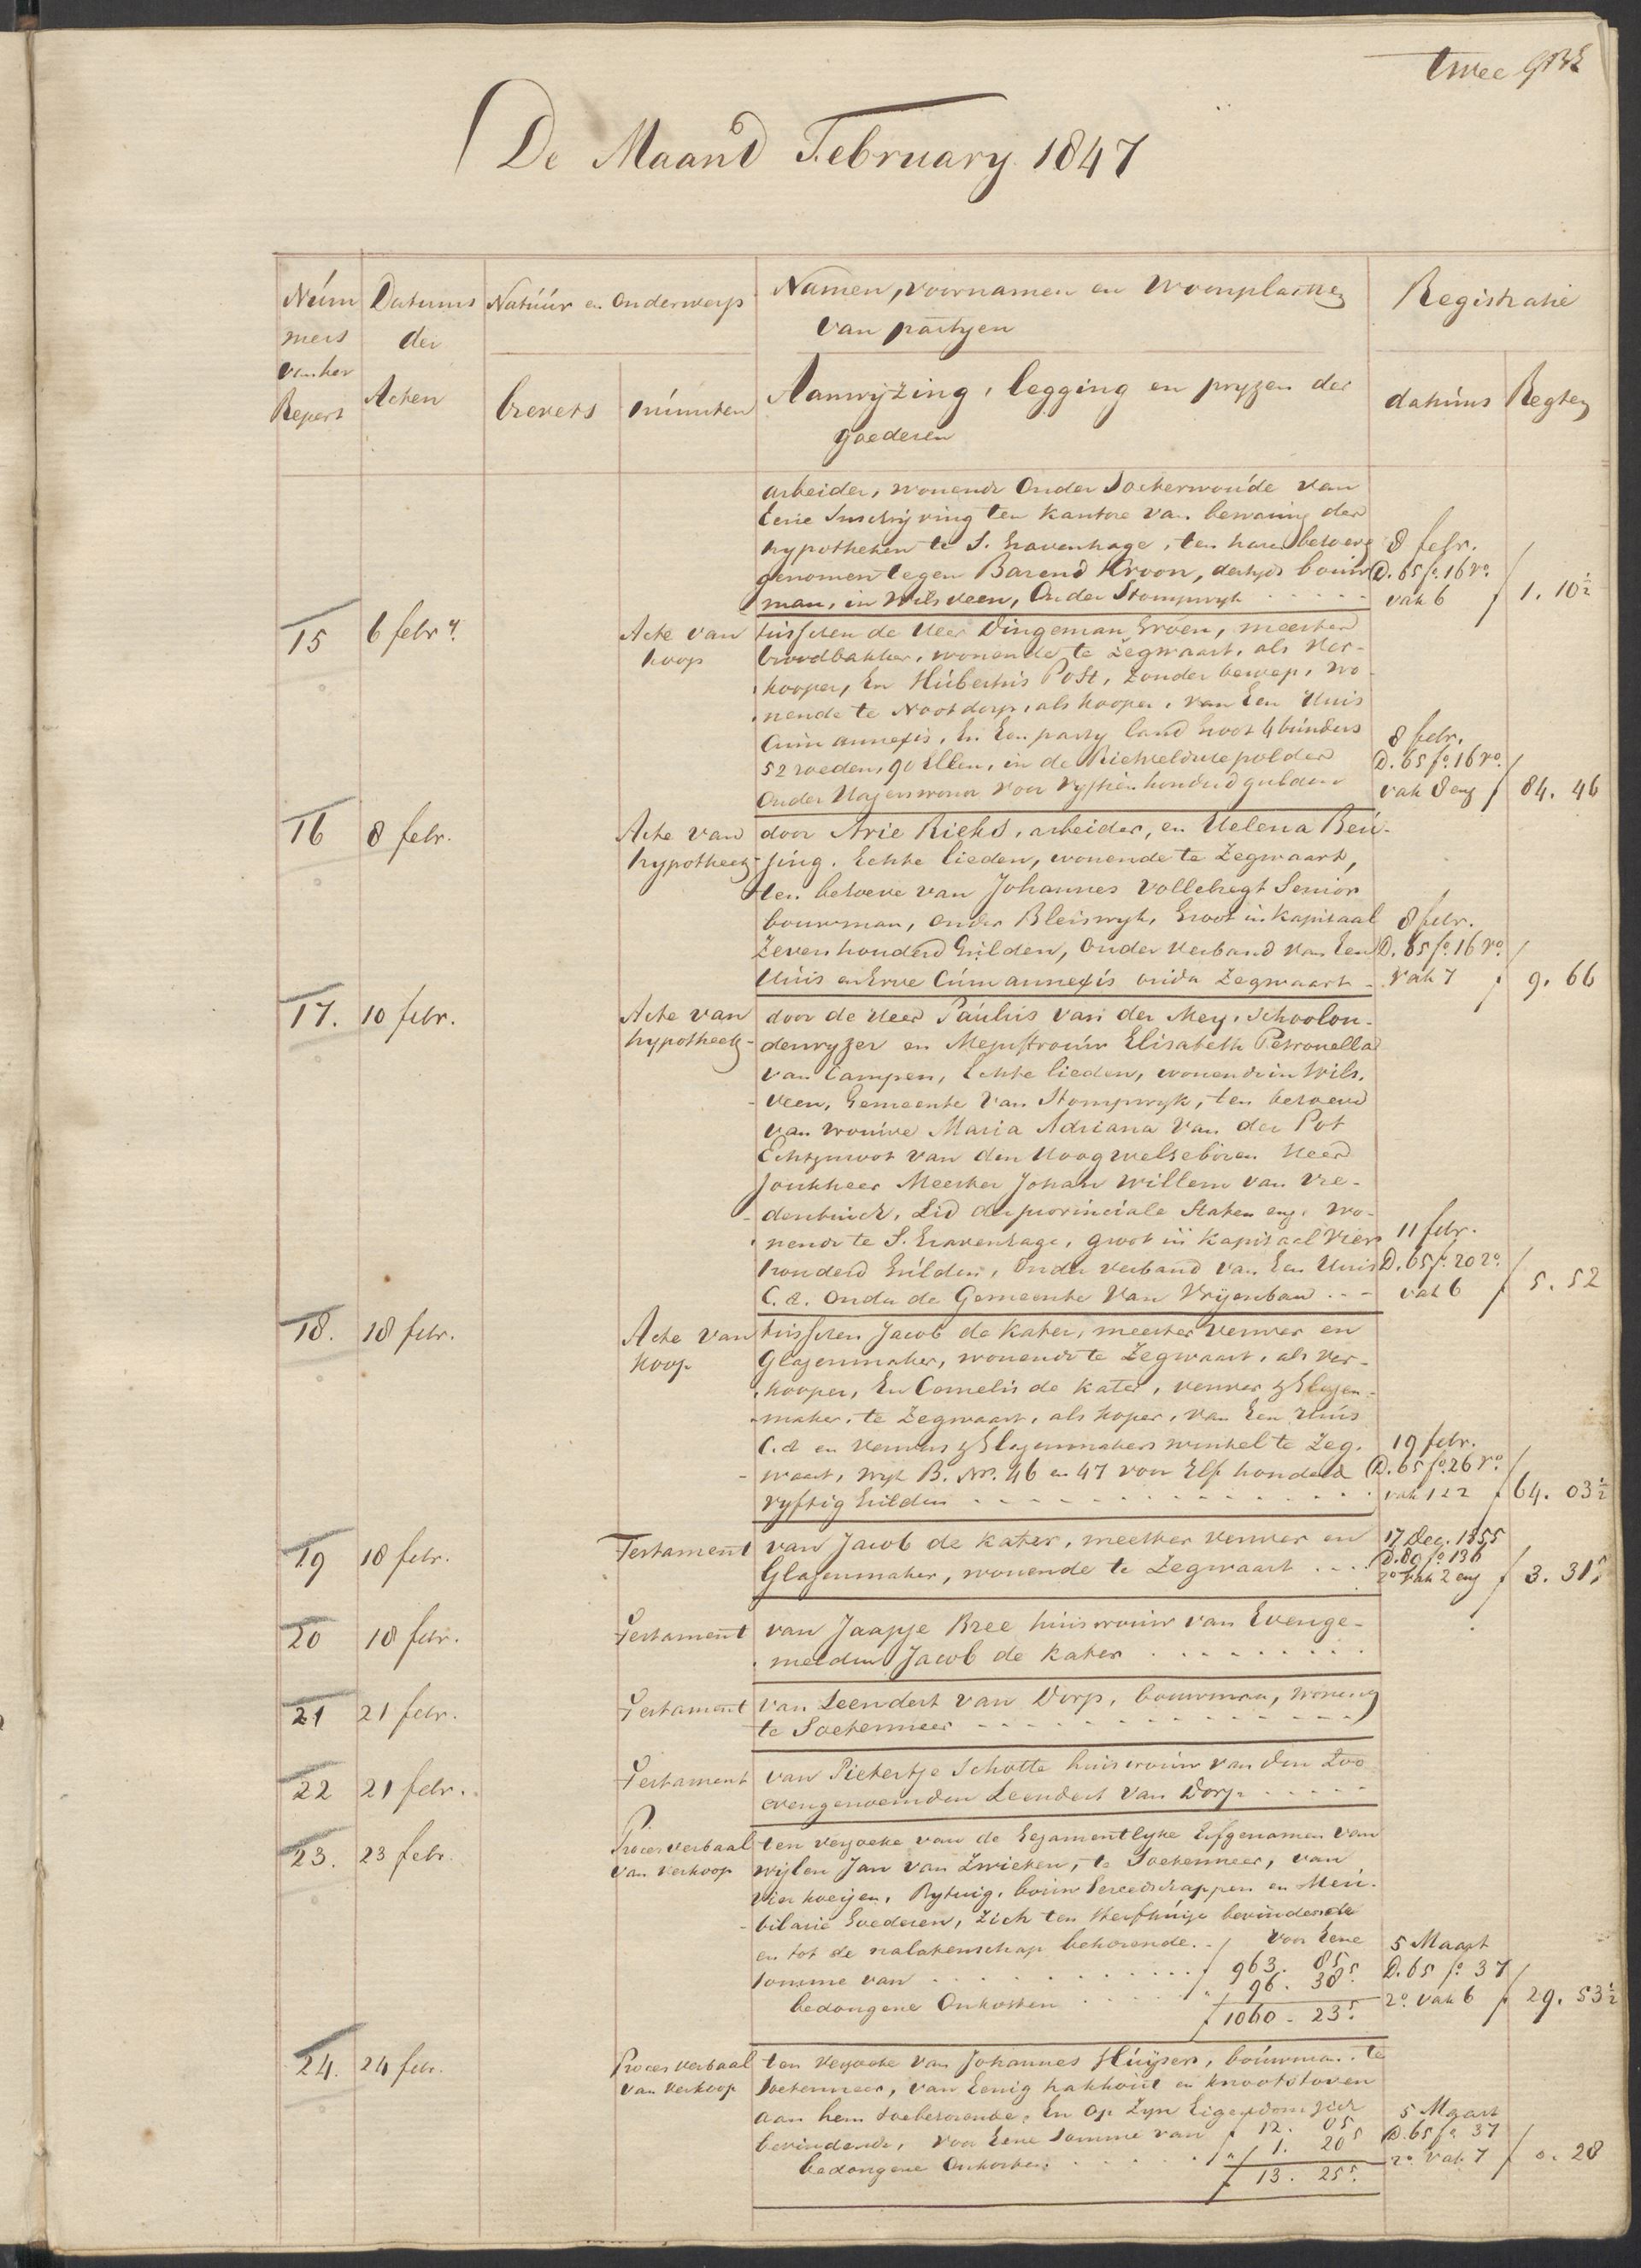 twee
De Maand February 1847
Núm Datums Natúúr en Onderwerp Namen, voornamen en Woonplaatsen Registratie
mers der van partyen
van het
Repert Acten brevets minuten Aanwyzing, legging en pryzen der datums Regten
goederen
arbeider, wonende Onder Soeterwoúde van
Eene Inschryving ten Kantore van bewaring der
hypotheken te S. Gravenhage, ten haren behoeve 8 febr.
genomen tegen Barend Kroon, destyds bouw D. 65 fo. 16 ro.
man, in Wilsveen, Onder Stompwyk . . . . . vak 6 f 1. 10½
15 6 febry. Acte van tusschen de Heer Dingeman Groen, meester
koop broodbakker, wonende te Zegwaart, als Ver-
kooper, En Húbertús Post, zonder beroep, wo-
nende te Nootdorp, als kooper, van Een Húis
Cúm annexis, En Een party land Groot 4 búnders 8 febr.
52 roeden, 90 Ellen, in de polder D. 65 fo. 16 ro.
Onder Hazerswoúde voor Vyftien honderd gulden vak 8 eng f 84. 46
16 8 febr. Acte van door Arie Rieks, arbeider, en Helena Beú-
hypotheek sing. Echte lieden, wonende te Zegwaart,
ten behoeve van Johannes Vollebregt Senior
bouwman, onder Bleiswyk, Groot in Kapitaal 8 febr.
Zeven honderd Gúlden, Onder Verband van Een D. 65 fo. 16 ro.
Húis en Erve Cúm annexis onder Zegwaart - vak 7 f 9. 66
17. 10 febr. Acte van door de Heer Paúlús van der Mey, Schoolon-
hypotheek - derwyzer en Mejuffroúw Elisabeth Petronella
van Campen, Echte lieden, wonende in Wils-
veen, Gemeente van Stompwyk, ten behoeve
van Vroúwe Maria Adriana van der Pot
Echtgenoot van den Hoog welgeboren Heer
Jonkheer Meester Johan Willem van Vre-
denbúrch, Lid der provinciale Staten eng. wo-
nende te S. Gravenhage, groot in Kapitaal Vier 11 febr.
honderd Gúlden, Onder verband van Een Húis D. 65 fo. 20 ro.
C.a. Onder de Gemeente van Vrijenban . . - vak 6 f 5. 52
18. 18 febr. Acte van tússchen Jacob de Kater, meester Verwer en
koop Glazenmaker, wonende te Zegwaart, als ver-
kooper, En Cornelis de Kater, verwer & Glazen-
maker, te Zegwaart, als koper, van Een Húis
C.a en Verwers & Glazenmakers winkel te Zeg- 19 febr.
waart, wyk B. No. 46 en 47 voor Elf honderd D. 65 fo. 26 ro.
vyftig Gúlden - - - - - vak 122 f 64. 03½
19 18 febr. Testament van Jacob de Kater, meester verwer en 17 Dec. 1855
Glazenmaker, wonende te Zegwaart . . . . D. 80 fo 136
ro vak 2 eng f 3. 31⁵
20 18 febr. Testament van Jaapje Bree húisvroúw van Evenge-
melden Jacob de Kater . . . . . . .
21 21 febr. Testament van Leendert van Dorp, bouwman, wonende
te Soetermeer - - - - -
22 21 febr. Testament van Pietertje Schotte húisvroúw van den Zoo
evengenoemden Leendert van Dorp . . . .
23. 23 febr. Proces verbaal ten verzoeke van de Gezamentlyke Erfgenamen van
van verkoop wylen Jan van Zwieten, te Soetermeer, van
Vier koeijen, Rytuig, boúw Gereedschappen en Meú-
bilaire Goederen, Zich ten sterfhúize bevindende
en tot de nalatenschap behorende. - Voor Eene 5 Maart
Somme van . . . . . f 963. 85⁵ D. 65 fo 37
bedongene Onkosten . . . . " 96. 38. ro. vak 6 f 29. 53½
f 1060 - 23⁵.
24. 24 febr. Proces verbaal ten verzoeke van Johannes Húijser, boúwman, te
van verkoop Soetermeer, van Eenig hakhout en knootstoven
aan hem toebehorende, En Op Zyn Eigendom zich 5 Maart
bevindende, voor Eene Somme van f 12. 05 D. 65 fo 37
bedongene Onkosten . . . . . " 1. 20⁵ ro. vak 7 f 0. 28
f 13. 25⁵.